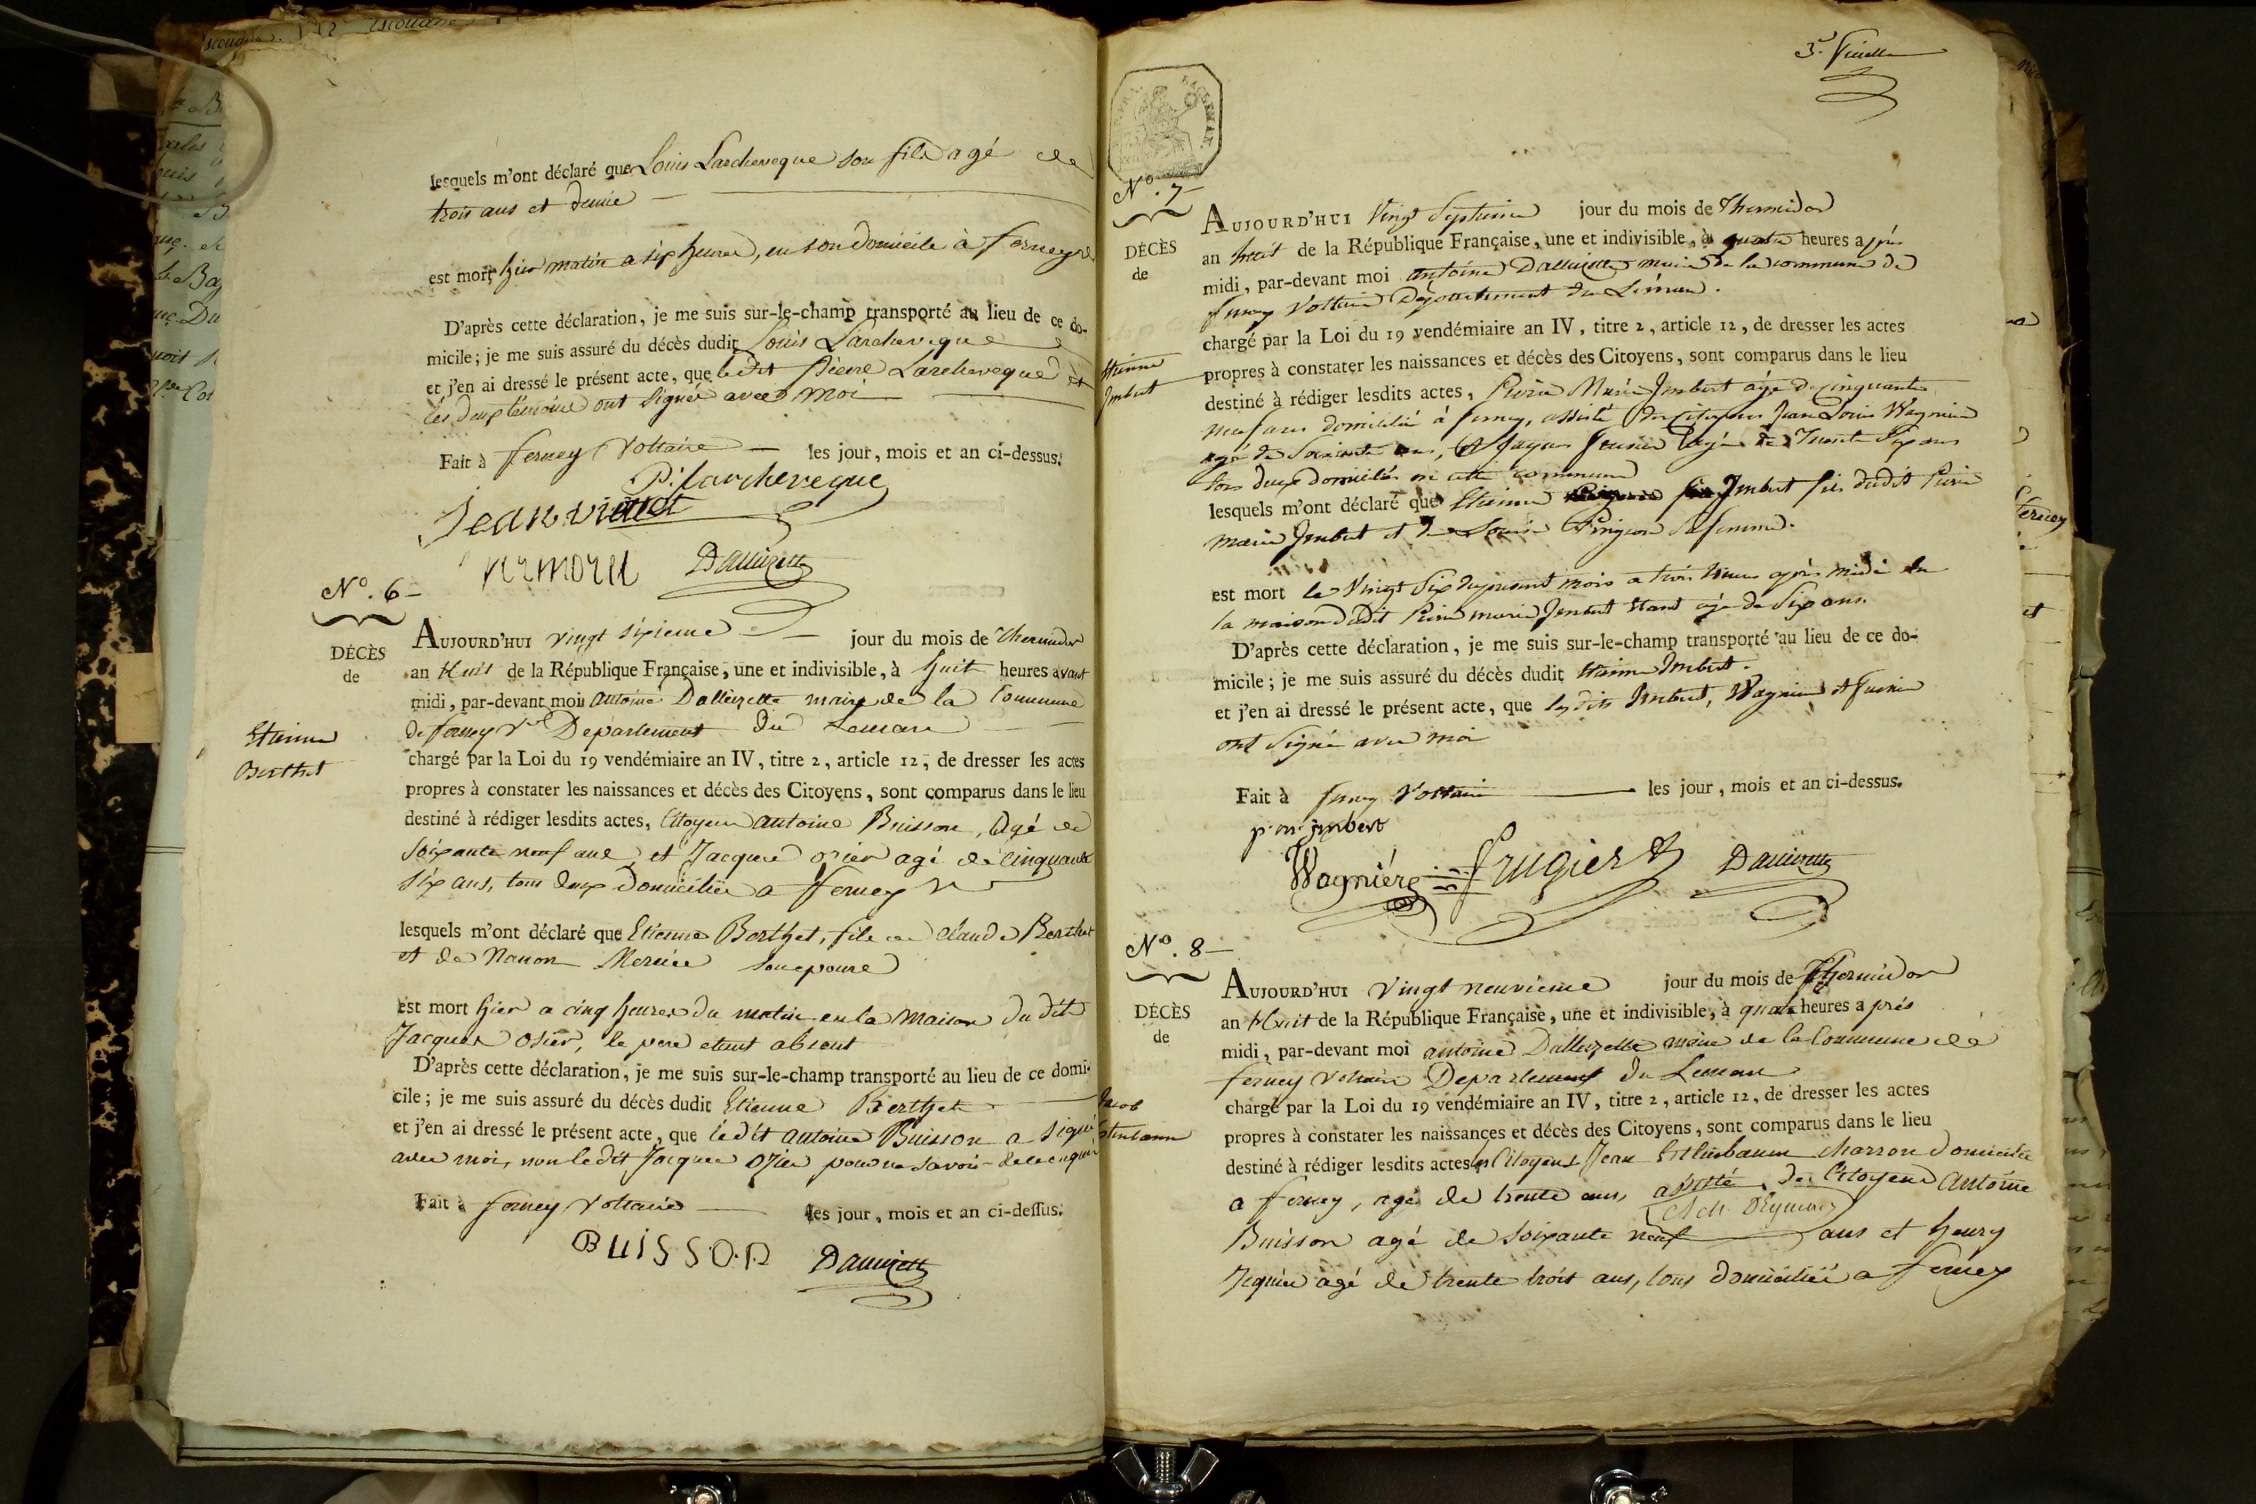 lesquels m'ont déclaré que Louis Larcheveque son fils agé de
trois ans et demie
est mort hier matin a six heures, en son domicile à ferney v
D'après cette déclaration, je me suis sur-le-champ transporté au lieu de ce do-
micile; je me suis assuré du décès dudit Louis Larcheveque
et j'en ai dressé le présent acte, que ledit Pierre Larcheveque et
les deux témoins ont signés avec moi
Fait à ferney Voltaire les jour, mois et an ci-dessus.
P. larcheveque
Jean
Dallizette
N.º 6
DÉCÈS
de
Etienne
Berthet
AUJOURD'HUI vingt sixieme jour du mois de Thermidor
an Huit de la République Française, une et indivisible, à huit heures avant
midi, par-devant moi antoine Dallizette maire de la Commune
de ferney Vre Departement du Leman
chargé par la Loi du 19 vendémiaire an IV, titre 2, article 12, de dresser les actes
propres à constater les naissances et décès des Citoyens, sont comparus dans le lieu
destiné à rédiger lesdits actes, Citoyens antoine Buisson, agé de
soixante neuf ans, et Jacques ozier agé de cinquante
six ans, tous deux Domiciliés a ferney V
lesquels m'ont déclaré que Etienne Berthet, fils de Claude Berthet
et de Nanon Mercier son epouse
est mort hier a cinq heures du matin en la maison du dit
Jacques Osier, le pere etant absent
D'après cette déclaration, je me suis sur-le-champ transporté au lieu de ce domi-
cile; je me suis assuré du décès dudit Etienne Berthet
et j'en ai dressé le présent acte, que ledit antoine Buisson a signé
avec moi, non ledit Jacques Ozier pour ne savoir de ce enquis
Fait à ferney Voltaire les jour, mois et an ci-dessus.
BUISSON Dallizette
3.e
N.º 7
DÉCÈS
de
Etienne
Imbert
AUJOURD'HUI Vingt Septieme jour du mois de Thermidor
an huit de la République Française, une et indivisible, à quatre heures après
midi, par-devant moi antoine Dallizette maire de la commune de
ferney Voltaire Département du Léman.
chargé par la Loi du 19 vendémiaire an IV, titre 2, article 12, de dresser les actes
propres à constater les naissances et décès des Citoyens, sont comparus dans le lieu
destiné à rédiger lesdits actes, Pierre Marie Imbert agé de cinquante
neuf ans domicilié à ferney, assisté des Citoyens Jean Louis Wagniere
agé de Soixante ans, et Jaques agé de Trente Six ans
tous deux domiciliés en cette commune
lesquels m'ont déclaré que Etienne Imbert fils dudit Pierre
Marie Imbert et de Louise Pingeon sa femme.
est mort le Vingt Six du présent mois a trois heures après midi en
la maison dudit Pierre marie Imbert étant agé de Six ans.
D'après cette déclaration, je me suis sur-le-champ transporté au lieu de ce do-
micile; je me suis assuré du décès dudit Etienne Imbert.
et j'en ai dressé le présent acte, que lesdits Imbert, Wagniere et
ont Signé avec moi
Fait à ferney Voltaire les jour, mois et an ci-dessus.
p. m. imbert
Wagnière frugier Dallizette
N.º 8
DÉCÈS
de
Jacob
AUJOURD'HUI vingt neuvieme jour du mois de Thermidor
an Huit de la République Française, une et indivisible, à quatre heures après
midi, par-devant moi antoine Dallizette maire de la Commune de
ferney Voltaire Departement du Leman
chargé par la Loi du 19 vendémiaire an IV, titre 2, article 12, de dresser les actes
propres à constater les naissances et décès des Citoyens, sont comparus dans le lieu
destiné à rédiger lesdits actes, les Citoyens Jean Domicilié
a ferney, agé de trente ans, assisté des Citoyens Antoine
Buisson agé de soixante neuf ans et henry
Jequier agé de trente trois ans, tous domiciliés a ferney